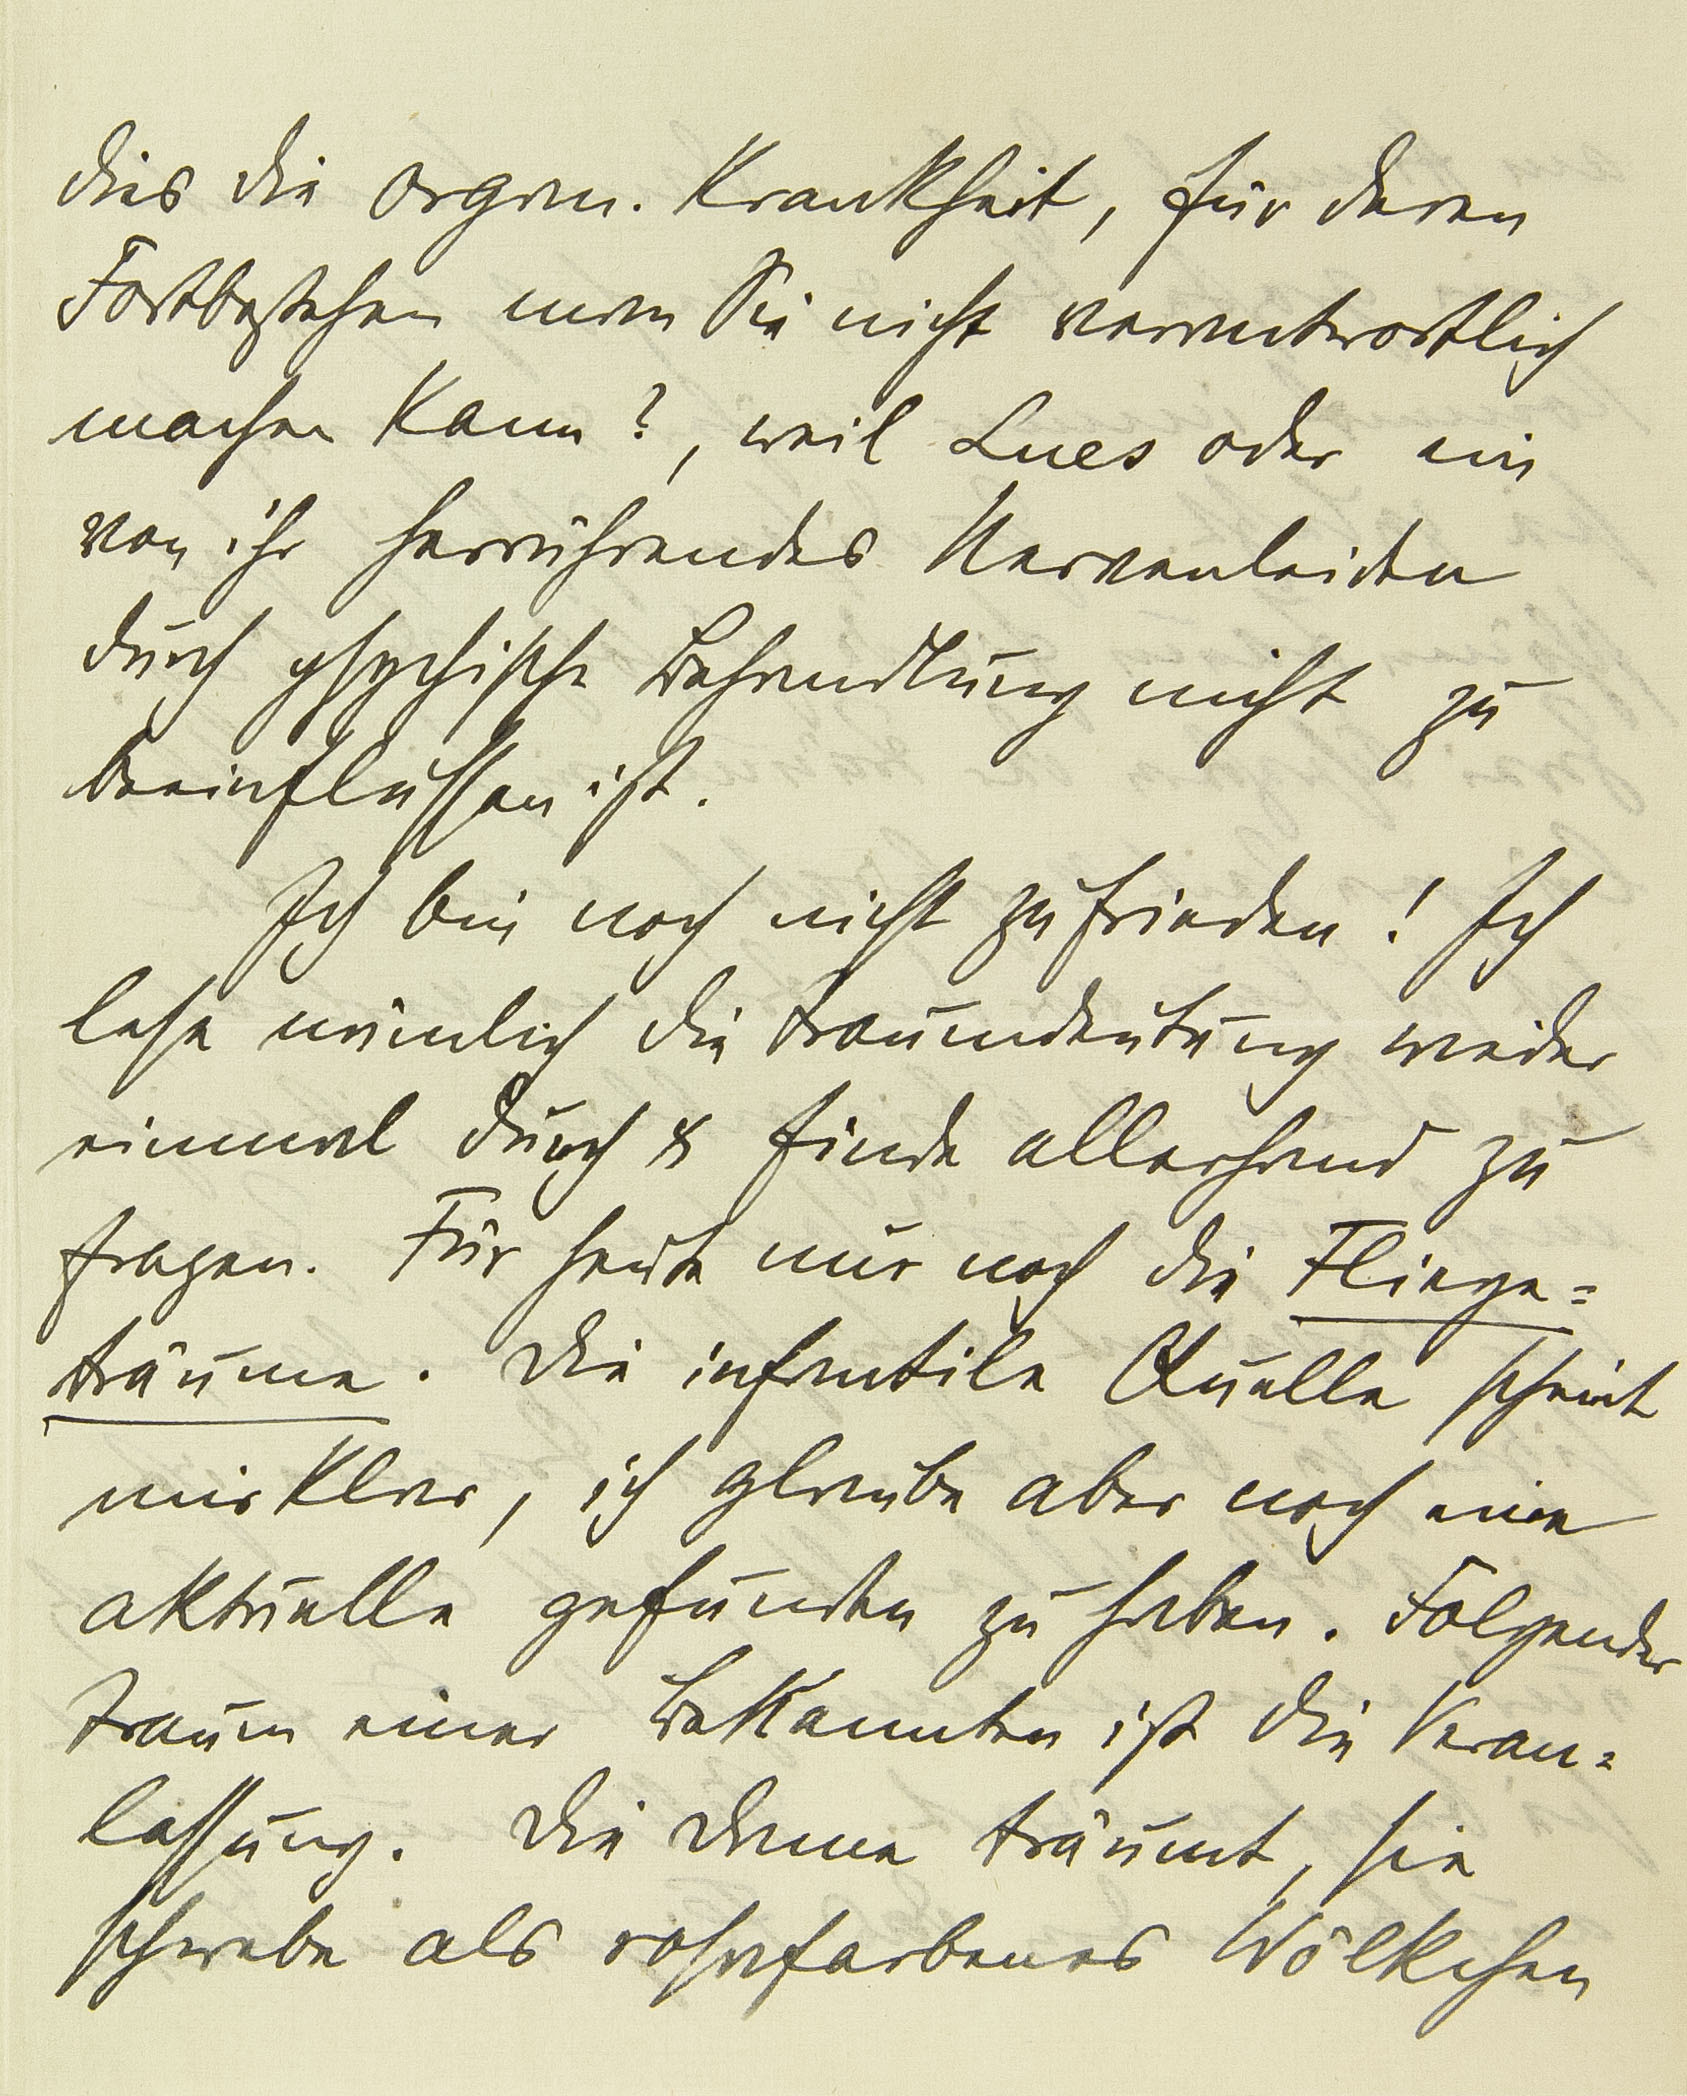 dies die organ. Krankheit, für deren
Fortbestehen man Sie nicht verantwortlich
machen kann?, weil Lues oder ein
von ihr herrührendes Nervenleiden
durch psychische Behandlung nicht zu
beeinflussen ist.
Ich bin noch nicht zufrieden! Ich
lese nämlich die Traumdeutung wieder
einmal durch & finde allerhand zu
fragen. Für heute nur noch die Fliege=
träume. Die infantile Quelle scheint
mir klar, ich glaube aber noch eine
aktuelle gefunden zu haben. Folgender
Traum einer Bekannten ist die Veran=
lassung. Die Dame träumt, sie
schwebe als rosafarbenes Wölkchen